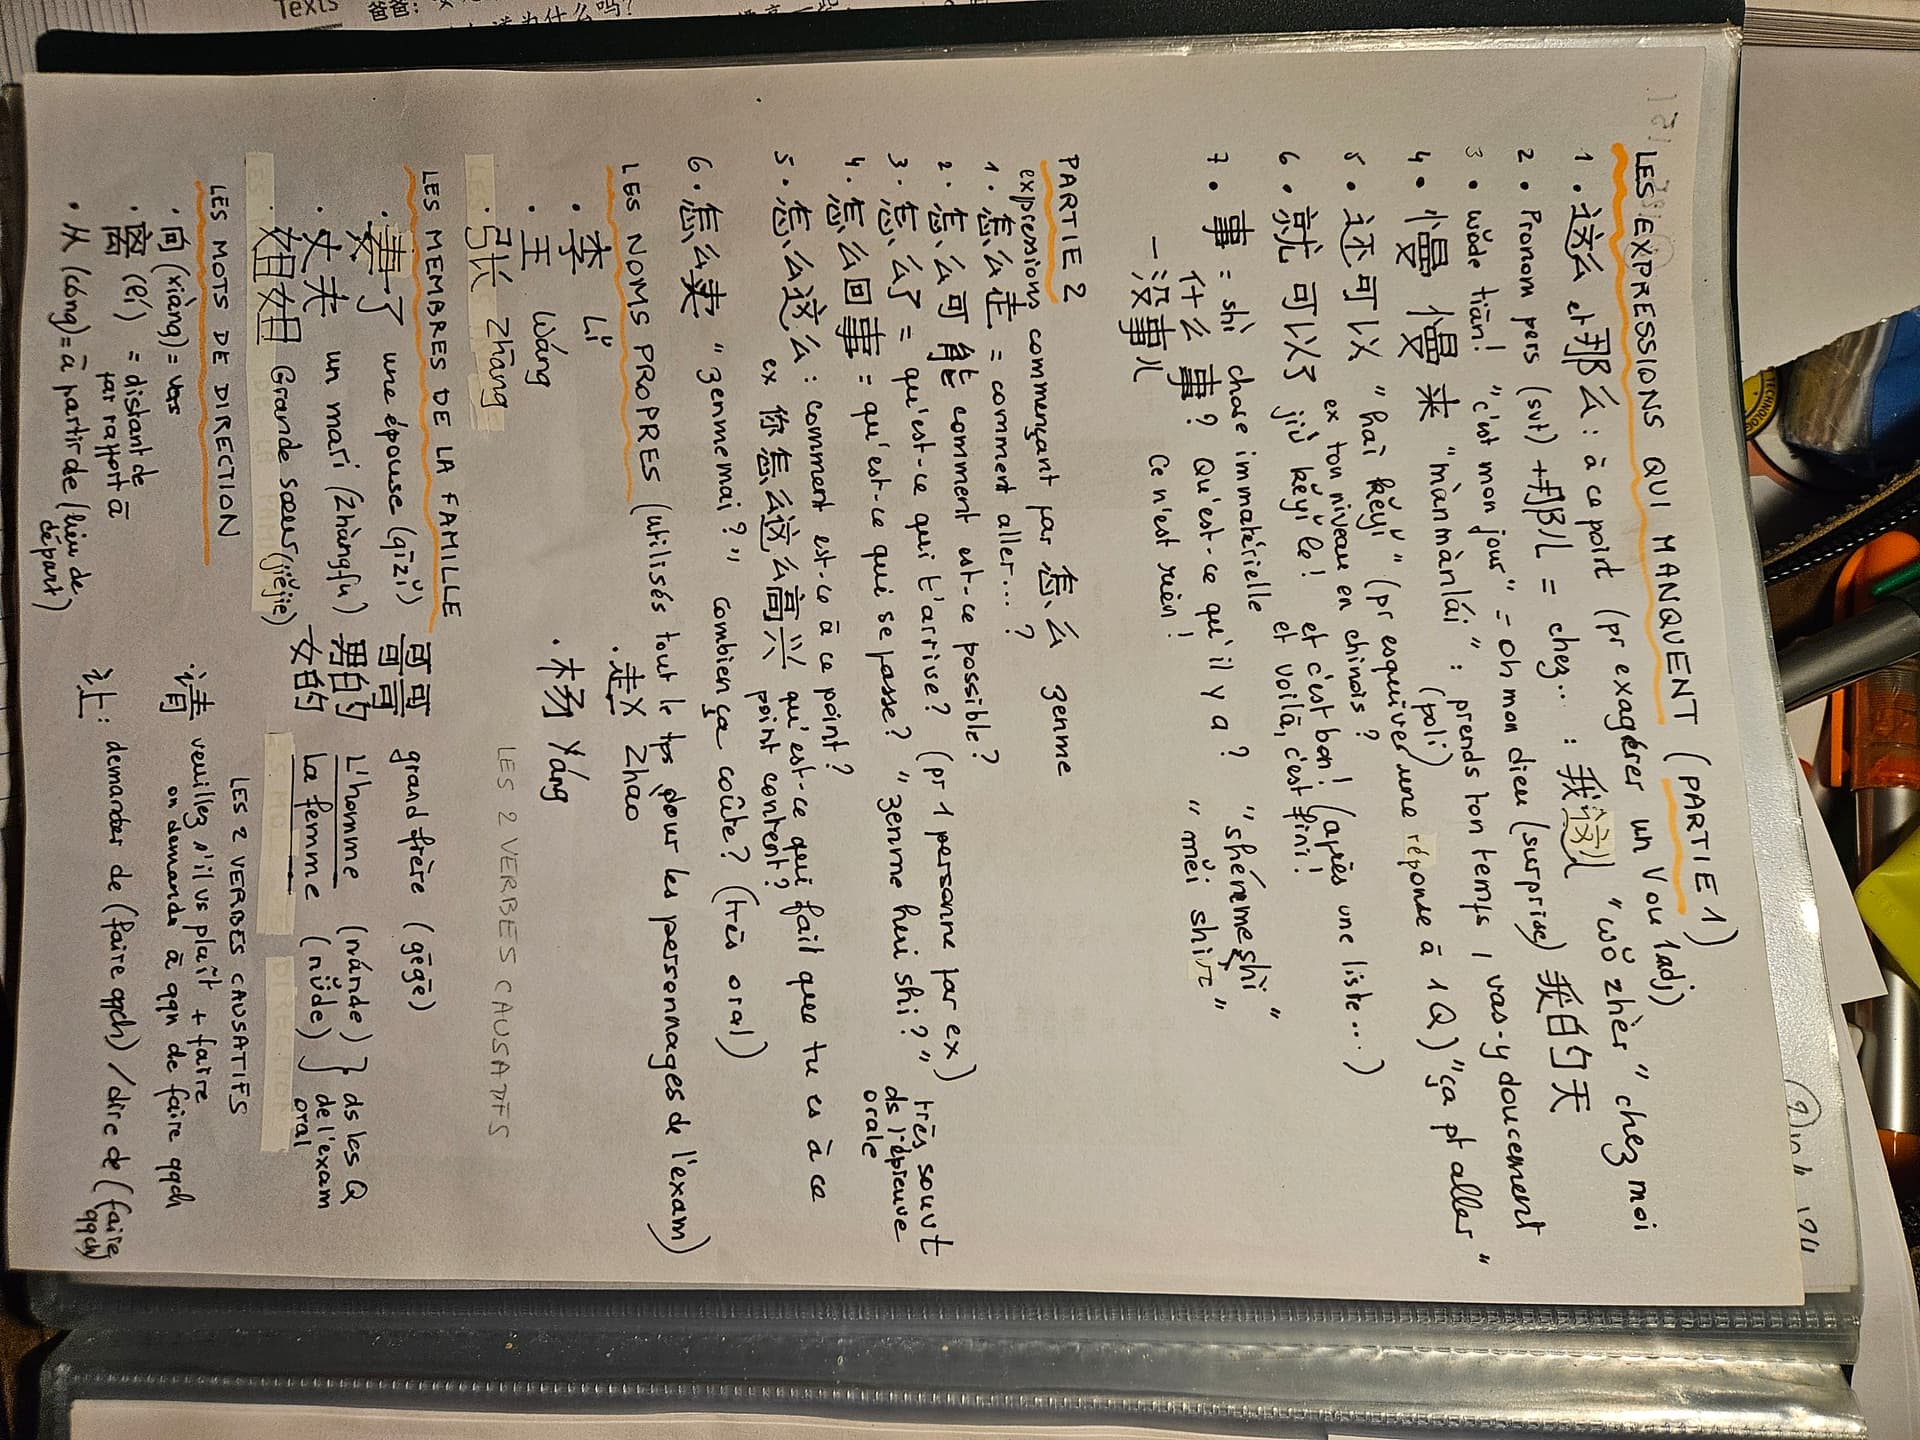 Texts
爸爸:
为什么吗?
LES EXPRESSIONS QUI MANQUENT (PARTIE 1)
1. 这么 et 那么 : à ce point (pr exagérer un V ou 1 adj)
2. Pronom pers (svt) + 那儿 = chez... : 我这儿 "wǒ zhèr" chez moi
3. wǒde tiān! "c'est mon jour" = oh mon dieu (surprise) 我的天
4. 慢慢来 "mànmànlái" : prends ton temps, vas-y doucement (poli)
5. 还可以 "haì kěyǐ" (pr esquiver une réponse à 1 Q) "ça pt aller"
ex ton niveau en chinois?
6. 就可以了 jiù kěyǐ le! et c'est bon! (après une liste...)
et voilà, c'est fini!
7. 事 = shì chose immatérielle
什么事? Qu'est-ce qu'il y a? "shénme shì"
— 没事儿 Ce n'est rien! "měi shìr"
PARTIE 2
expressions commençant par 怎么 zenme
1. 怎么走 = comment aller...?
2. 怎么可能 comment est-ce possible?
3. 怎么了 = qu'est-ce qui t'arrive? (pr 1 personne par ex)
4. 怎么回事 = qu'est-ce qui se passe? "zenme hui shi?" très souvt ds l'épreuve orale
5. 怎么这么 : comment est-ce à ce point?
ex 你怎么这么高兴 qu'est-ce qui fait que tu es à ce point content?
6. 怎么卖 "zenme mai?" combien ça coûte? (très oral)
LES NOMS PROPRES (utilisés tout le tps pour les personnages de l'exam)
. 李 Lǐ
. 王 Wáng
. 张 Zhāng
. 赵 Zhao
. 杨 Yáng
LES 2 VERBES CAUSATIFS
LES MEMBRES DE LA FAMILLE
. 妻子 une épouse (qīzǐ)
. 丈夫 un mari (zhàngfu)
. 姐姐 Grande sœur (jiějie)
哥哥 grand frère (gēgē)
男的 L'homme (nánde)
女的 La femme (nǚde)
} ds les Q de l'exam oral
LES MOTS DE DIRECTION
. 向 (xiàng) = vers
. 离 (lí) = distant de par rapport à
. 从 (cóng) = à partir de (lieu de départ)
LES 2 VERBES CAUSATIFS
. 请 veuillez s'il vs plaît + faire
on demande à qqn de faire qqch
让 : demander de (faire qqch) / dire de (faire qqch)
TECHNOLOG